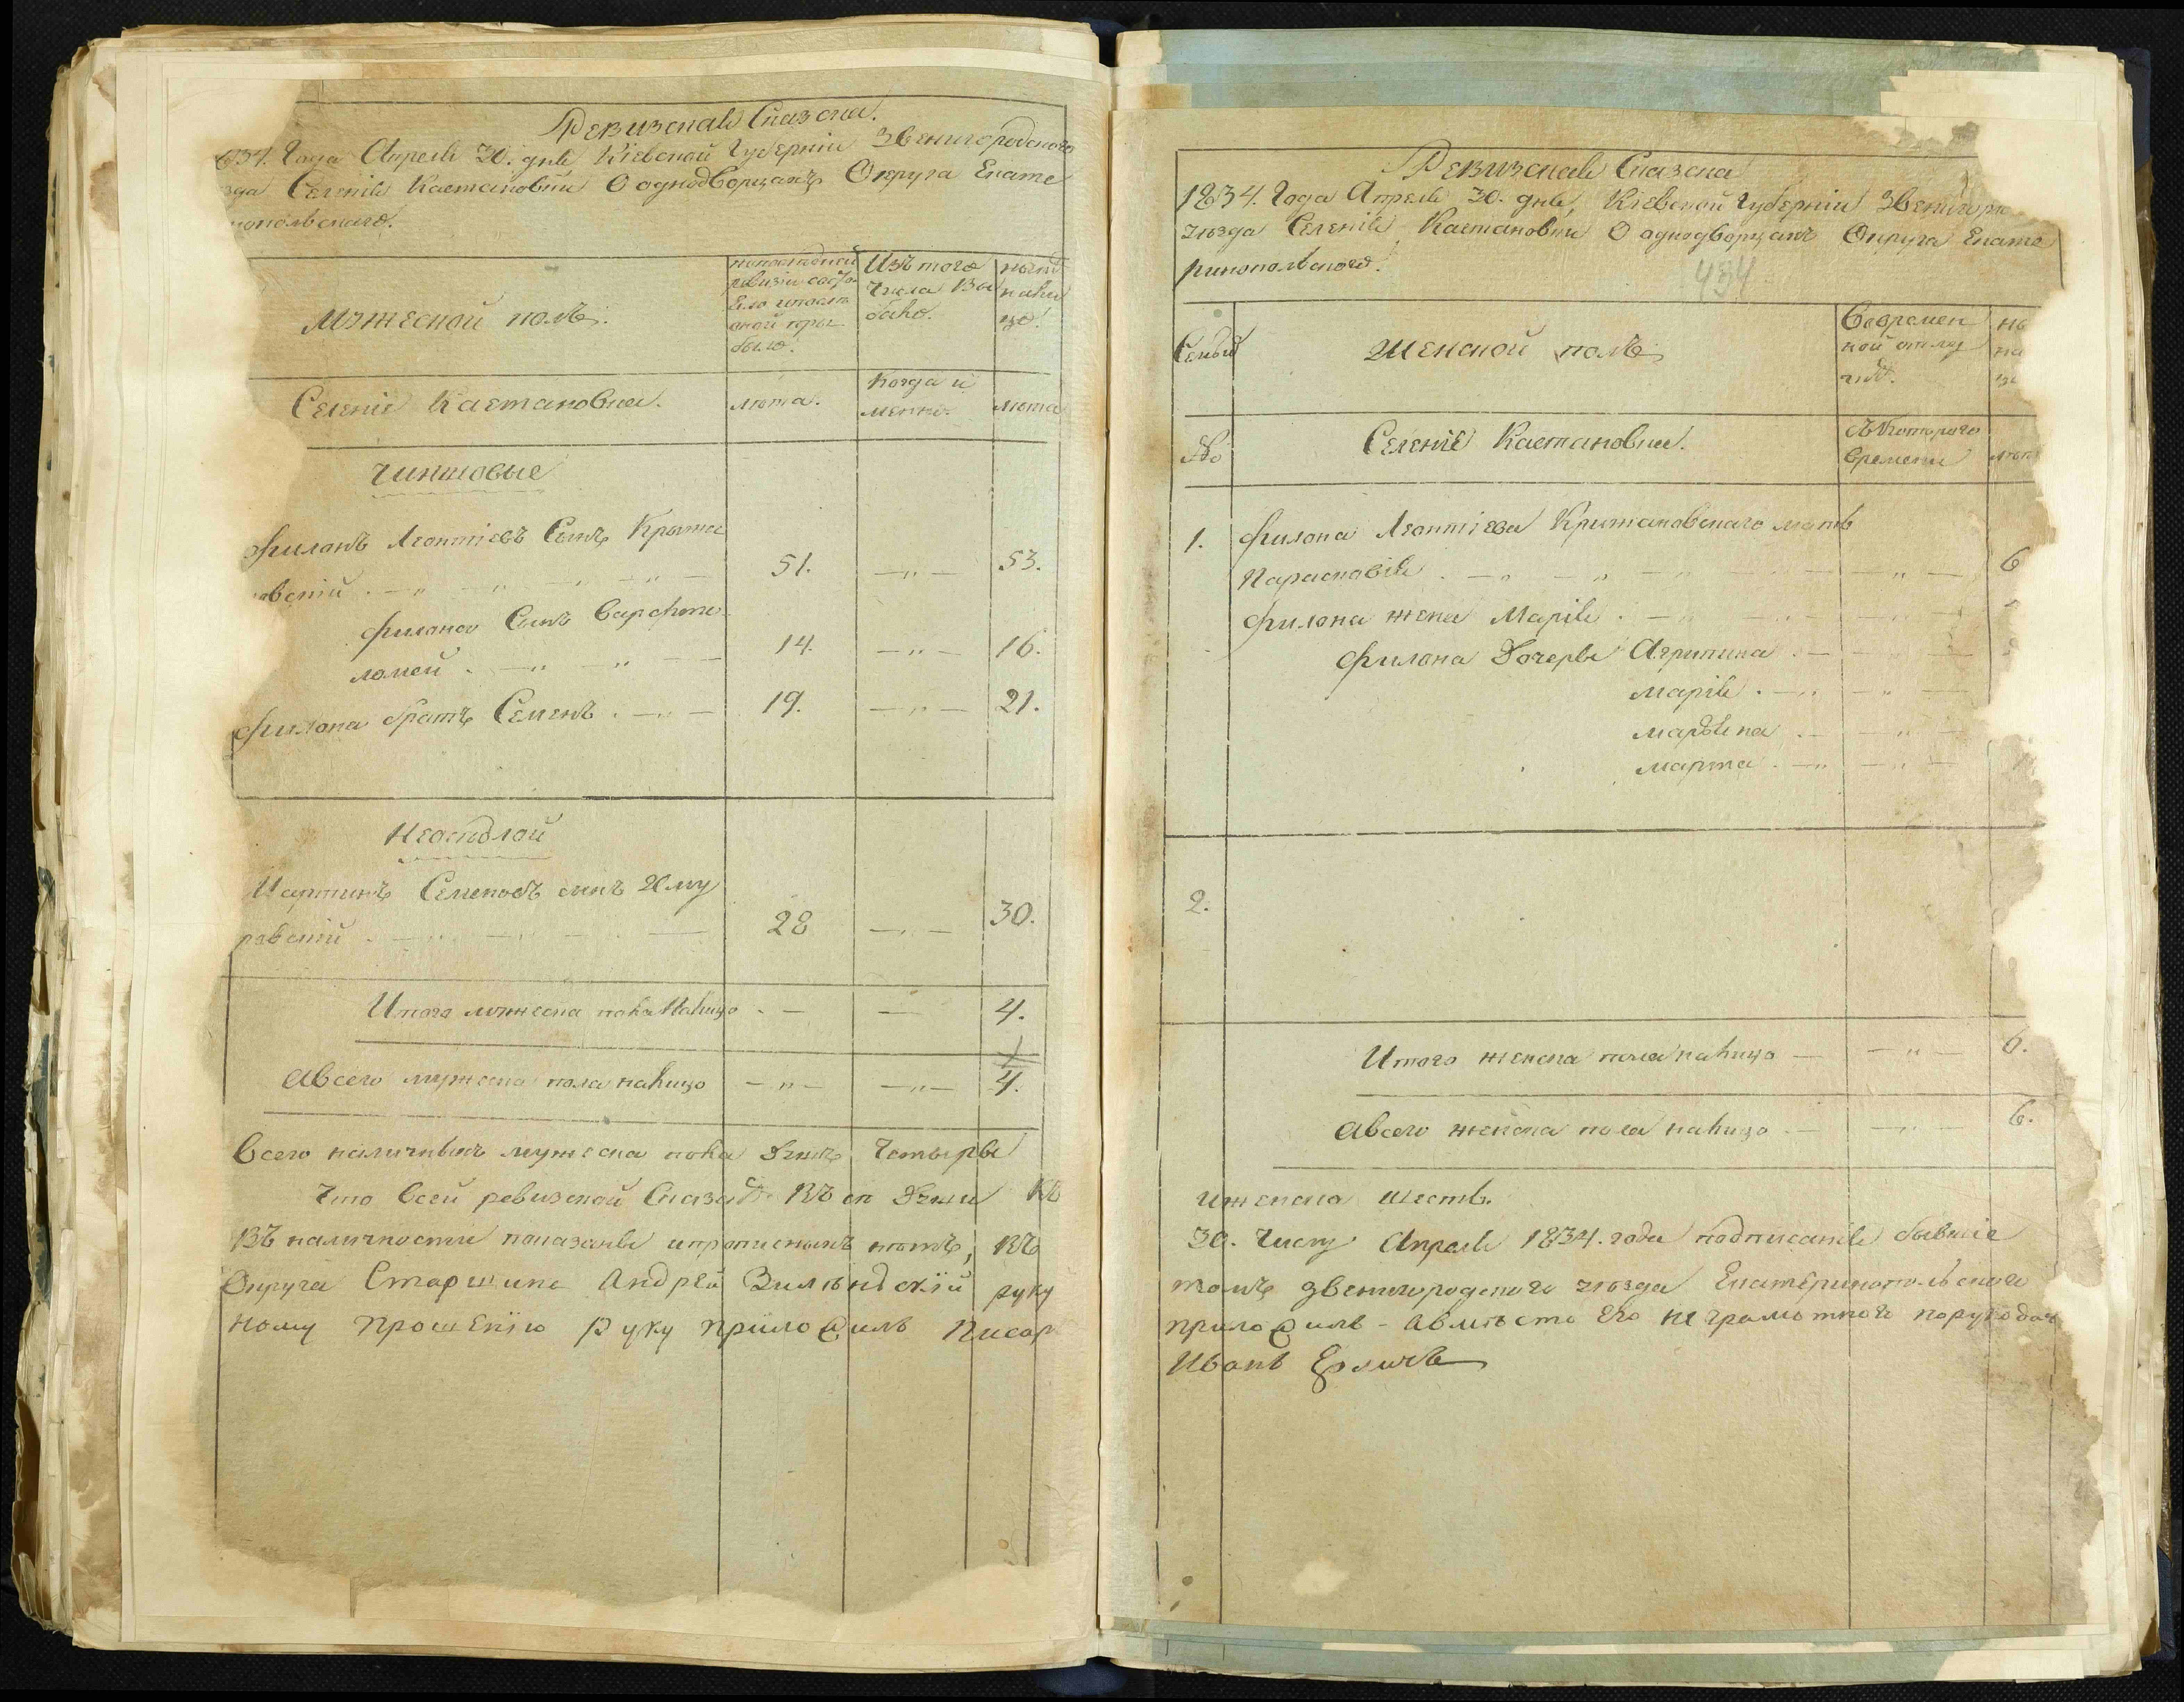 Ревизская Сказска.
834. Года Апреля 30. дня Кіевской Губерніи Звенигородскаго
зда Селенія Каетановки О однодворцахъ Округа Екате
нопольскаго.
Мужеской полъ.
Изъ того
числа Вы
было.
Селеніе Каетановки.
лѣта.
Когда и
менно.
лѣта
Чиншовые
Филонъ Леонтіевъ Сынъ Крыжа
новскій
51.
53.
Филона Сынъ Варфоло
ломей
14.
16.
Филона братъ Семенъ
19.
21.
Неоседлой
Мартинъ Семеновъ сынъ Жму
ровскій
28
30.
Итого мужеска пола налицо
4.
Авсего мужеска пола налицо
4.
Всего наличныхъ мужеска пола душъ Четыре
Что Всей ревизской Сказкѣ Всѣ души
Въ наличности показаны и прописныхъ нѣтъ, Въ
Округа Старшина Андрей Вильндскій руку
ному Прошенію Руку приложилъ Писар
Ревизская Сказска
1834. Года Апреля 30. дня, Кіевской Губерніи Звенигоро
уѣзда Селенія Каетановки О однодворцахъ Округа Екате
ринопольского.
434
Семьи
Женской полъ
Вовремен
ной отлу
чкѣ.
на
№
Селеніе Каетановки.
Съ Котораго
Времени
лѣта
1.
Филона Леонтіева Крижановскаго мать
Парасковія
6
Филона жена Марія
Филона Дочери Агрипина
Марія
Марьяна
Марта
2.
Итого женска пола налицо
6.
Авсего женска пола налицо
6.
Иженска шесть.
30. Числу Апреля 1834. года подписаніе бывшіе
томъ Звенигородскаго уѣзда Екатеринопольскаго
приложилъ - Авместо Его не грамотного поруко дач
Иванъ